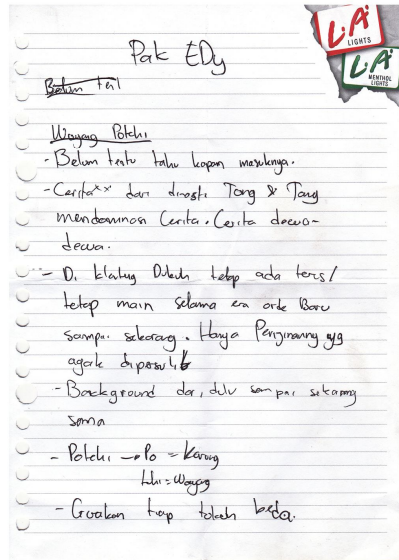 L.A
LIGHTS
L.A
MENTHOL
LIGHTS
Pak EDy
Belum
Wayang Potehi
- Belum tentu tahu kapan masuknya.
- Cerita xx dari dinasti Tang & Tang
mendominasi Cerita. Cerita dewa-
dewa.
- Di klateng Dukuh tetap ada terus/
tetap main selama era orde Baru
sampai sekarang. Hanya Perizinannya yg
agak dipersulit
- Background dari dulu sampai sekarang
sama
- Potehi → Po = Karung
tehi = Wayang
- Gerakan tiap tokoh beda.